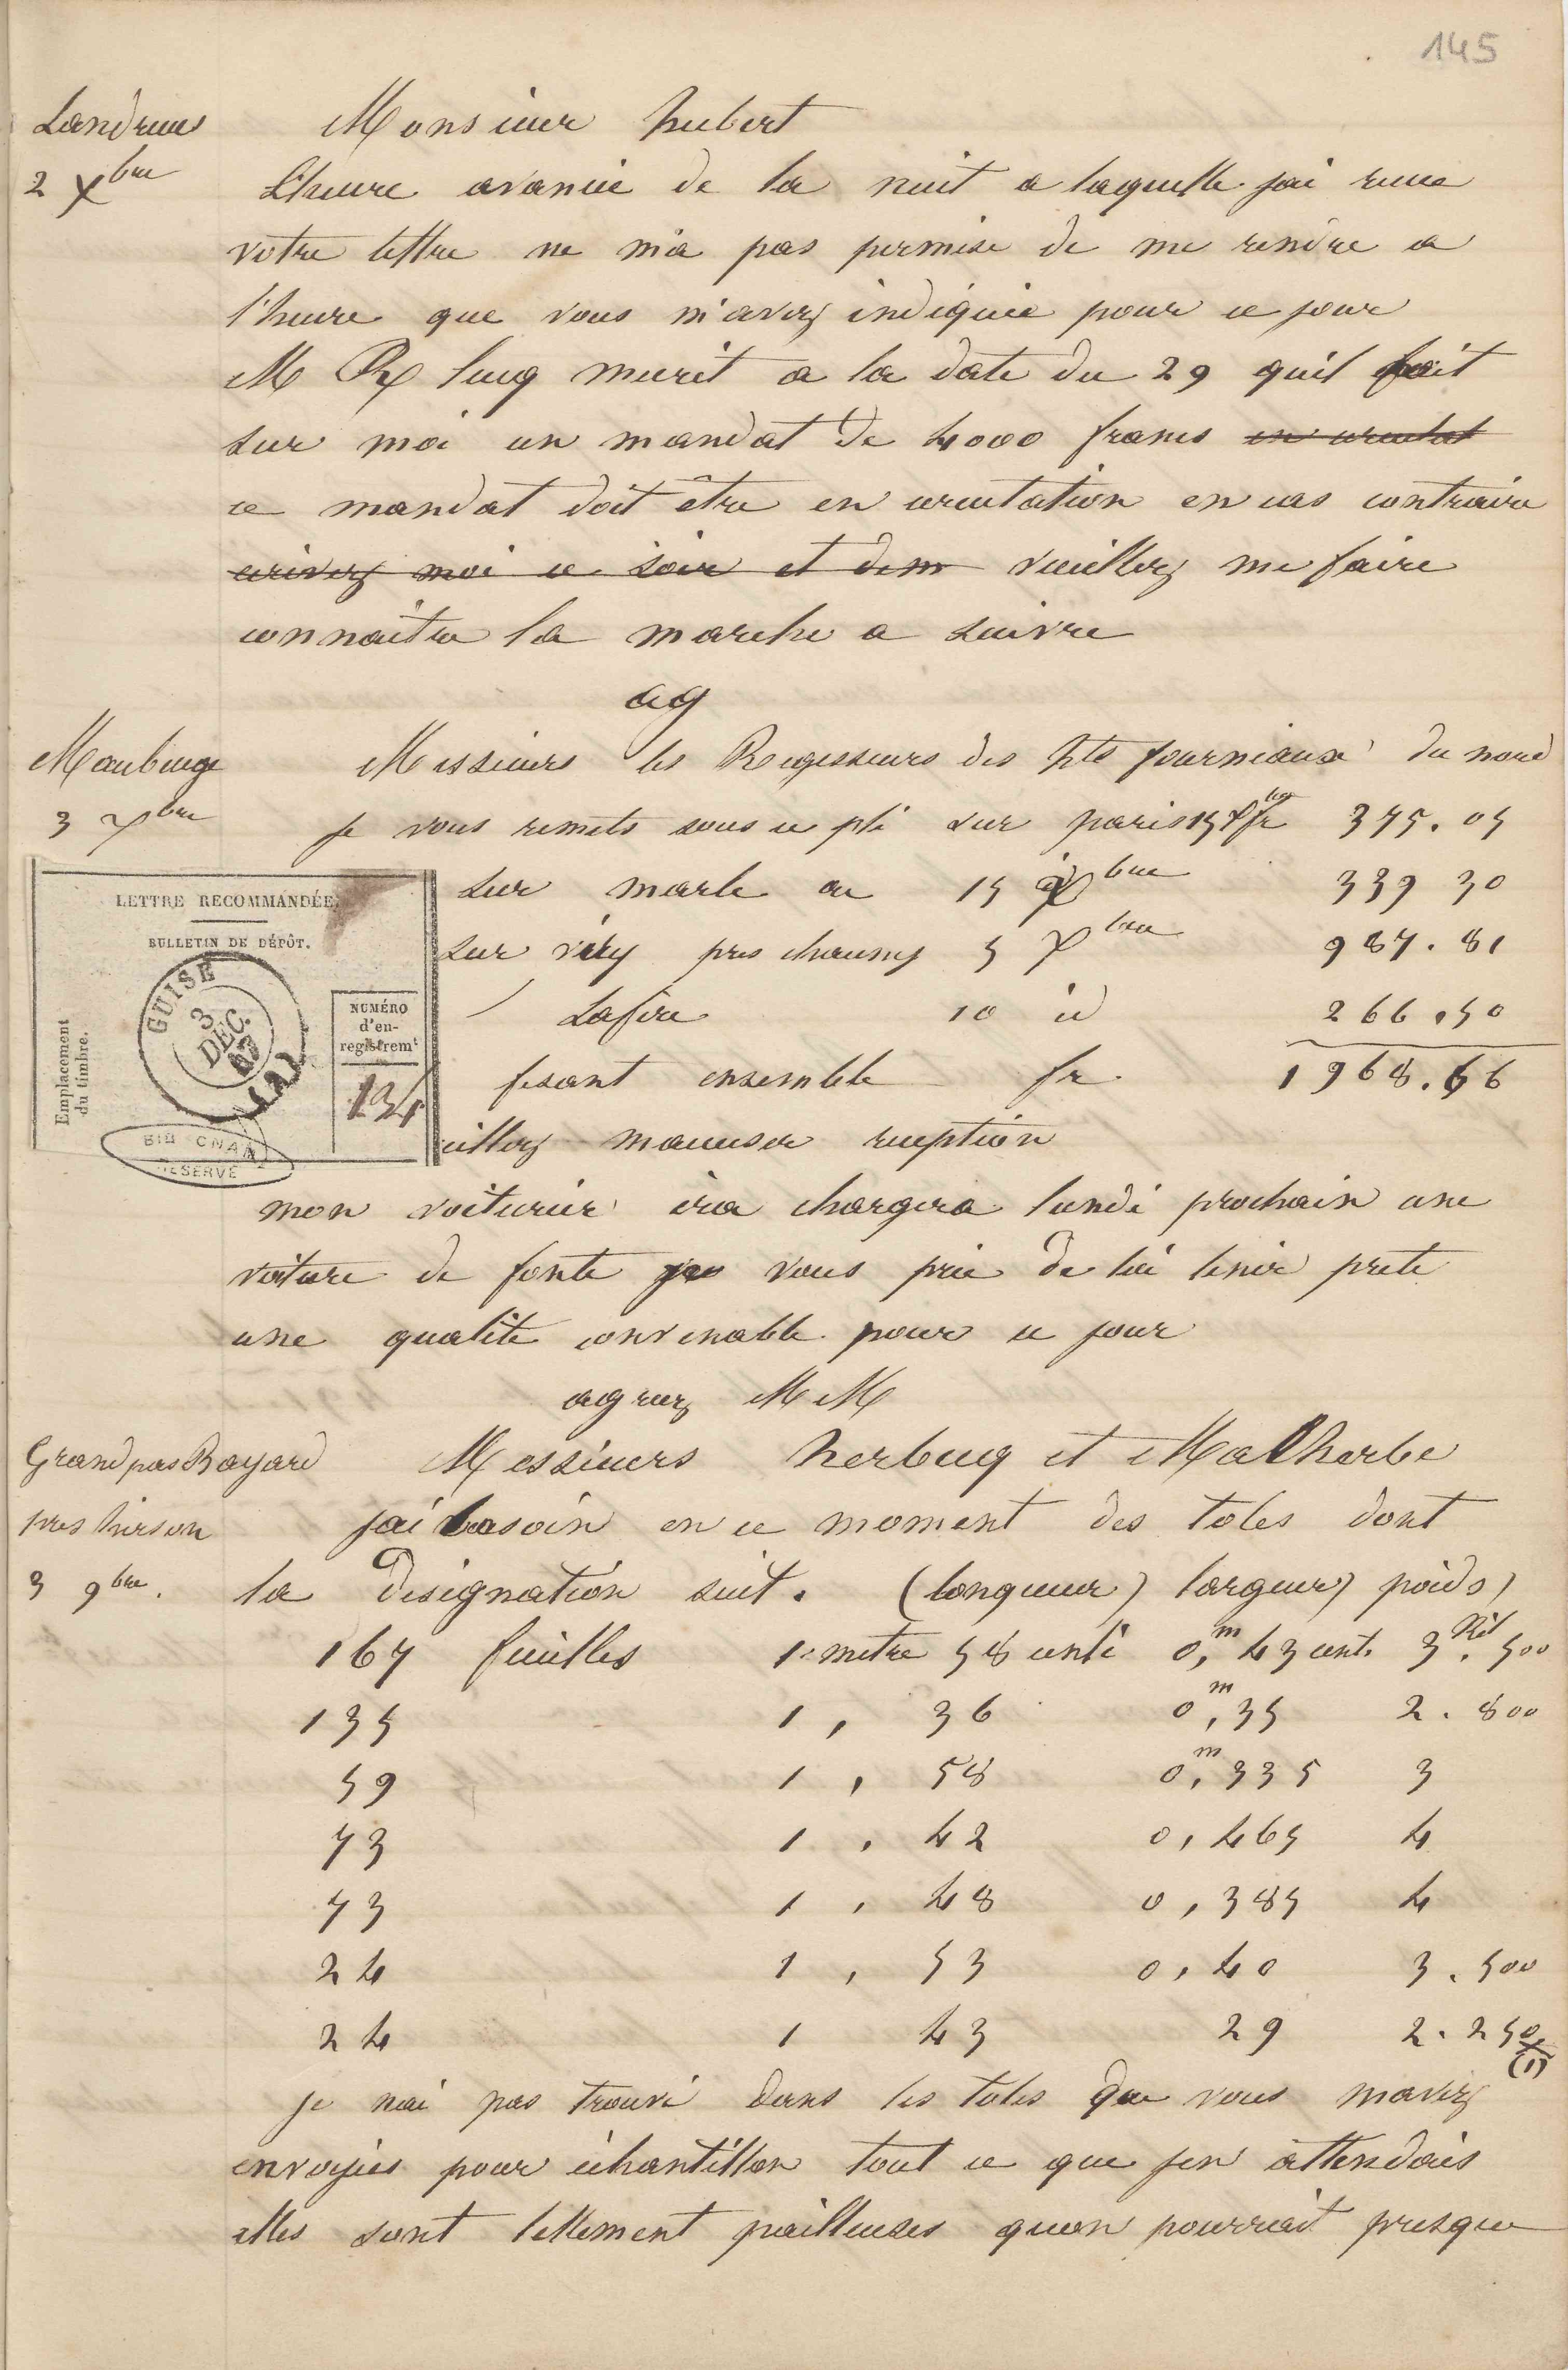 145
Landrecies
Monsieur hubert
2 Xbre
L'heure avancée de la nuit a laquelle jai recue
votre lettre ne m'a pas permise de me rendre a
l'heure que vous m'avez indiquée pour ce jour
M mecrit a la date du 29 quil fait
sur moi un mandat de 4000 francs en circulat
ce mandat doit être en circulation en cas contraire
ecrivez moi ce soir et dem veuillez me faire
connaître la marche a suivre
ag
Maubeuge
Messieurs les Regisseurs des hts fourneaux du nord
3 Xbre
je vous remets sous ce pli sur paris 15 Xbre fr 375.05
sur marle au 15 Xbre 339 30
sur viry pres chauny 5 Xbre 987.81
Lafère 10 id 266.50
fesant ensemble fr. 1968.66
euillez maccuser reception
LETTRE RECOMMANDÉE
BULLETIN DE DÉPÔT.
Emplacement
du timbre.
GUISE
3
DEC.
67
(A)
NUMÉRO
d'en-
registremt
134
BIB CNAM
RESERVE
mon voiturier ira chargera lundi prochain une
voiture de fonte je vous prie de lui tenir prete
une qualite convenable pour ce jour
agreez MM
Grand pas Bayard
Messieurs herbecq et Malherbe
pres hirson
jai besoin en ce moment des toles dont
3 9bre.
la designation suit. (longueur) largeur) poids)
167 feuilles 1 metre 58 centi 0,m 43 cent. 3.kil 500
135 1, 36 0,m 35 2.800
59 1, 58 0,m 335 3
73 1, 42 0,465 4
73 1, 48 0,385 4
24 1, 53 0,40 3.500
24 1 43 29 2.250
(1)
je nai pas trouvé dans les toles que vous mavez
envoyées pour échantillon tout ce que jen attendais
elles sont tellement pailleuses quon pourrait presque